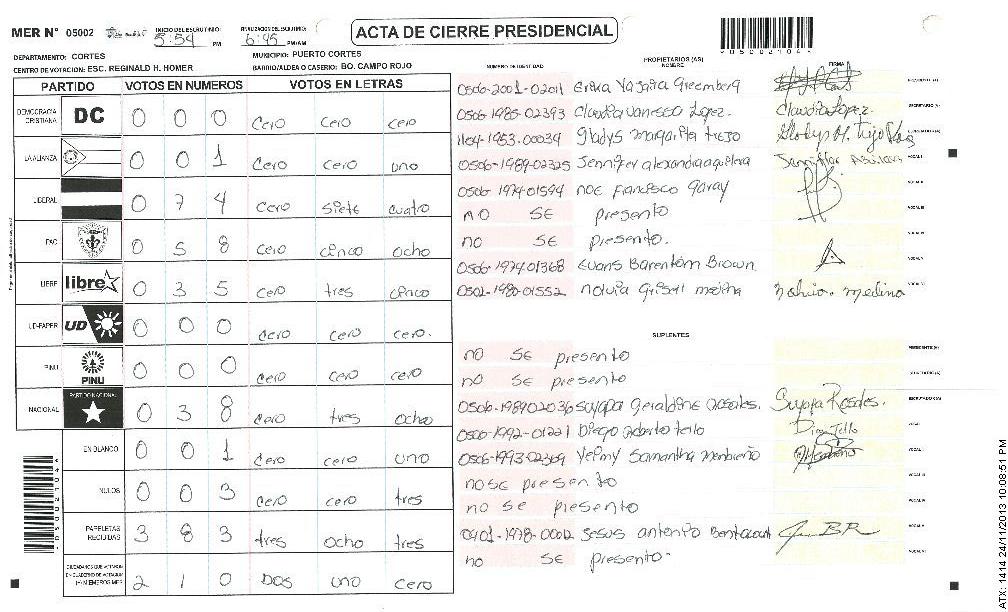 MER N° 05002 INICIO DEL ESCRUTINIO: 5:54 PM FINALIZACION DEL ESCRUTINIO: 6:45 PM/AM
ACTA DE CIERRE PRESIDENCIAL
DEPARTAMENTO: CORTES MUNICIPIO: PUERTO CORTES
CENTRO DE VOTACION: ESC. REGINALD H. HOMER BARRIO/ALDEA O CASERIO: BO. CAMPO ROJO
PARTIDO VOTOS EN NUMEROS VOTOS EN LETRAS
DEMOCRACIA CRISTIANA DC 0 0 0 Cero cero cero
LA ALIANZA 0 0 1 Cero cero uno
LIBERAL 0 7 4 Cero siete cuatro
PAC 0 5 8 Cero cinco ocho
LIBRE libre 0 3 5 Cero tres cinco
UD-FAPER UD 0 0 0 Cero cero cero.
PINU PINU 0 0 0 Cero cero cero
NACIONAL PARTIDO NACIONAL 0 3 8 Cero tres ocho
EN BLANCO 0 0 1 Cero cero uno
NULOS 0 0 3 Cero cero tres
PAPELETAS RECIBIDAS 3 8 3 tres ocho tres
2 1 0 Dos uno cero
NUMERO DE IDENTIDAD PROPIETARIOS (AS) NOMBRE FIRMA
0506-2001-02011 Erika Yajaira Greemberg
0506-1985-02393 Claudia Vanessa Lopez. Claudia Lopez.
1104-1953-00034 Gladys Margarita Trejo
0506-1989-02325 Jennifer alexandra aguilera
0506-1974-01594 noe Francisco Garay
no SE presento
no SE presento.
0506-1974-01368 Evans Barentom Brown
0502-1980-01552 nolvia Grisel medina Nolvia medina
SUPLENTES
no SE presento
no SE presento
0506-1989-02036 Suyapa Geraldine Rosales. Suyapa Rosales.
0506-1992-01221 Diego Roberto Tello Diego Tello
0506-1993-02369 Yelmy Samantha Membreño
no SE presento
no se presento
0401-1978-00012 Jesus antonio
no SE presento.
ATX: 1414 24/11/2013 10:08:51 PM